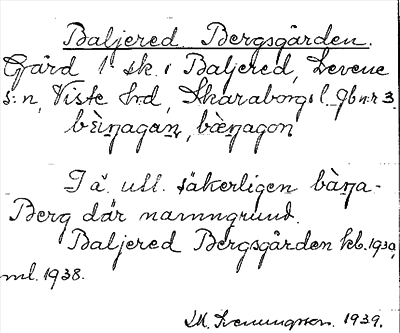 Baljered Bergsgården.
Gård i sk. i Baljered, Levene
s:n, Viste h:d, Skaraborgs l. gbnr 3.
bæ̀ŋagaṇ, bæŋagon
I ä. utt. säkerligen bàŋa-
Berg där namngrund.
Baljered Bergsgården kb. 1930,
ml. 1938.
M. Svenungsson. 1939.